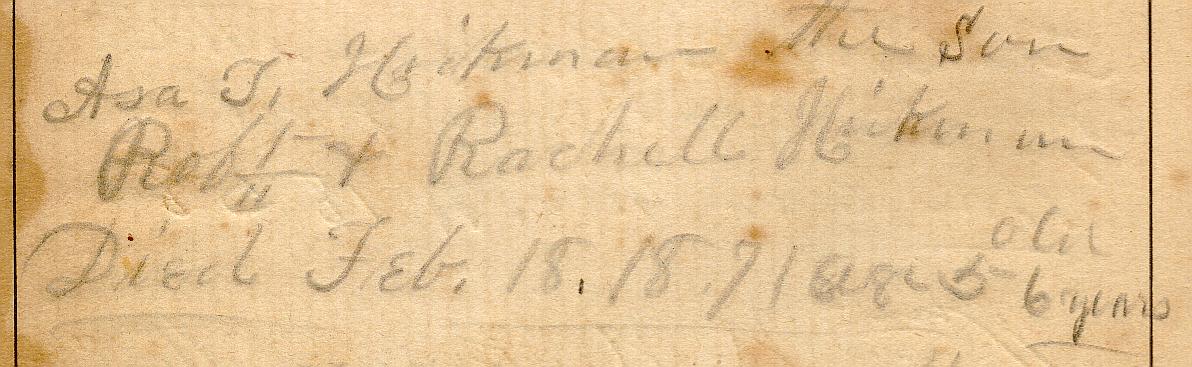 Asa T. Hickman the Son
Robt & Rachell Hickman
Died Feb. 18. 1871 age 56 years old